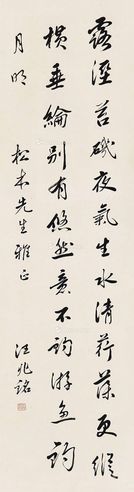 露溼苔磯夜氣生水清荇藻更縱
橫垂綸別有悠然意不釣游魚釣
月明 松本先生雅正 汪兆銘